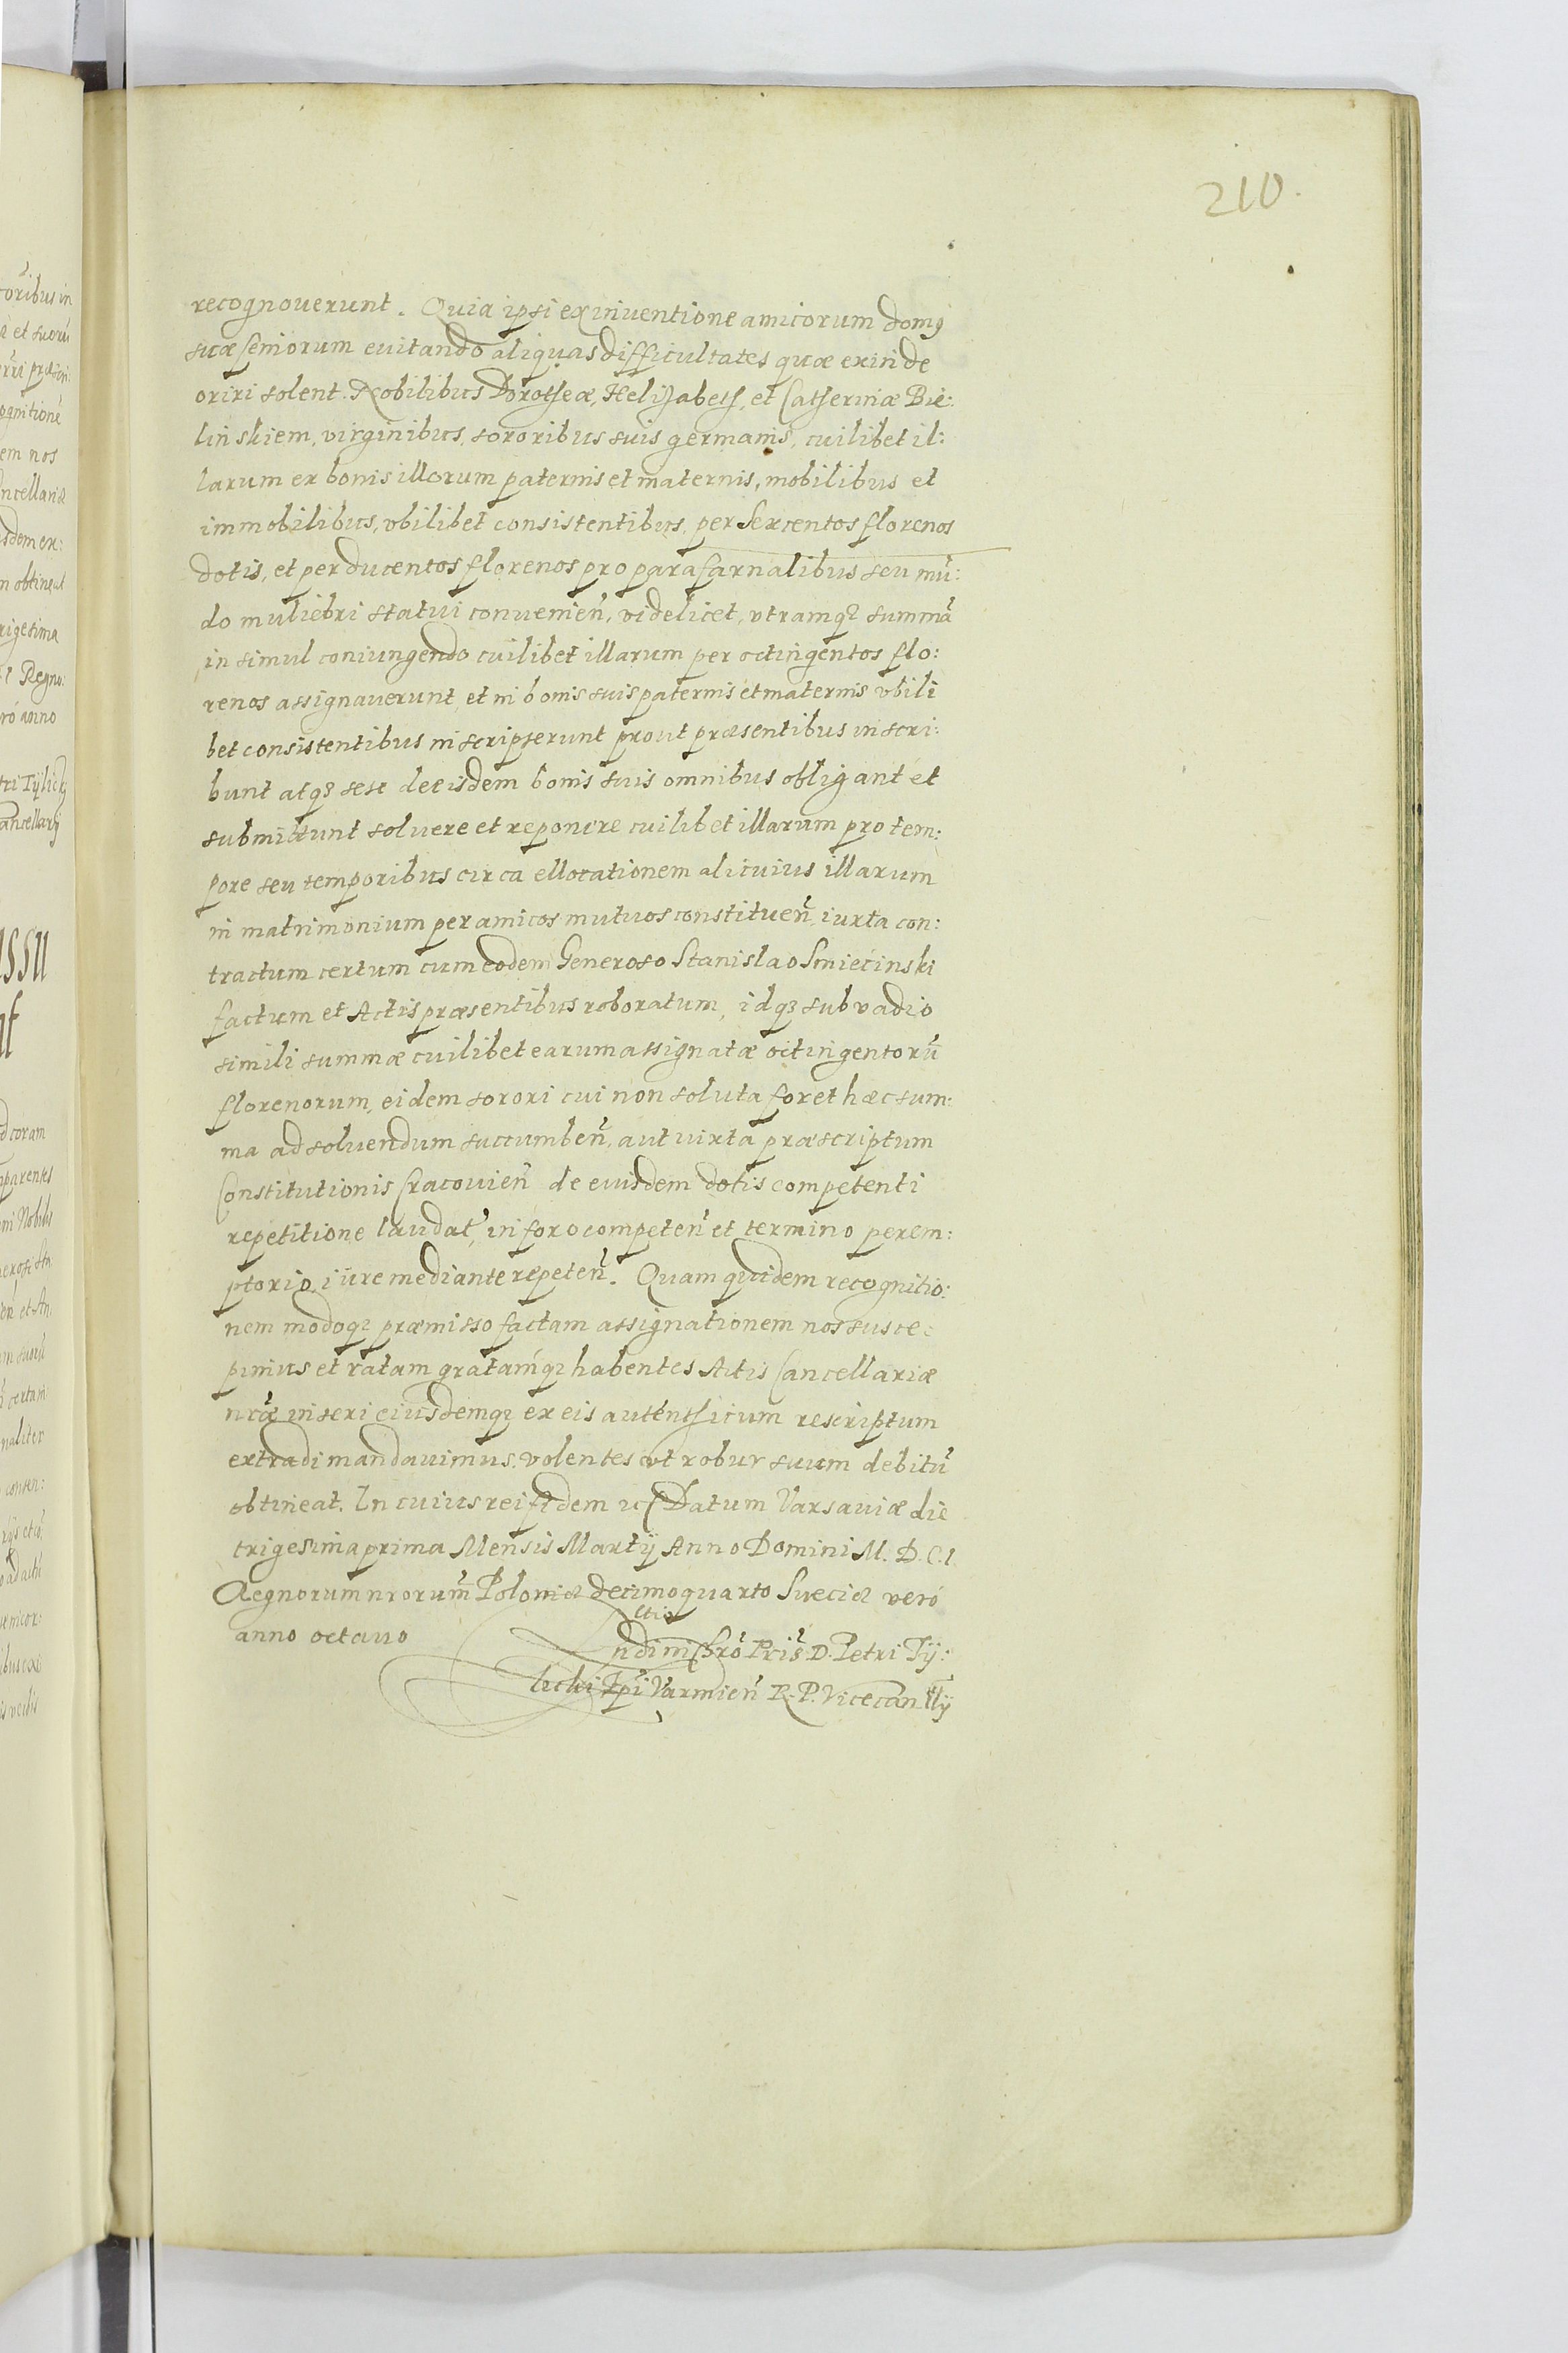 210.
recognouerunt. Quia ipsi ex inuentione amicorum domꝯ
suæ seniorum euitando aliquas difficultates quæ exinde
oriri solent. Nobilibus Dorotheæ, Helizabeth, et Catherinæ Bie:
linskiem, virginibus, sororibus suis germanis, cuilibet il:
larum ex bonis illorum paternis et maternis, mobilibus et
immobilibus, vbilibet consistentibus, per Sexcentos florenos
dotis, et per ducentos florenos pro parafarnalibus seu mū:
do muliebri statui conuenien̄, videlicet, vtramqꝫ summā
in simul coniungendo cuilibet illarum per octingentos flo:
renos assignauerunt, et in bonis suis paternis et maternis vbili
bet consistentibus inscripserunt prout præsentibus inscri:
bunt atqꝫ sese de eisdem bonis suis omnibus obligant et
submittunt soluere et reponere cuilibet illarum pro tem:
pore seu temporibus circa ellocationem alicuius illarum
in matrimonium per amicos mutuos constituen̄, iuxta con:
tractum certum cum eodem Generoso Stanislao Smiecinski
factum et Actis præsentibus roboratum, idqꝫ sub vadio
simili summæ cuilibet earum assignatæ octingentorū
florenorum, eidem sorori cui non soluta foret hæc sum:
ma ad soluendum succumben̄, aut iuxta præscriptum
Constitutionis Cracouien̄ de euisdem dotis competenti
repetitione laudat̄, in foro competen̄ et termino perem:
ptorio, iure mediante repeten̄. Quam quidem recognitio:
nem modoqꝫ præmisso factam assignationem nos susce:
pimus et ratam gratamqꝫ habentes Actis Cancellariæ
nrǣ inseri eiusdemqꝫ ex eis autenthicum rescriptum
extradi mandauimus, volentes vt robur suum debitū
obtineat. In cuius rei fidem ɿc Datum Varsauiæ die
trigesima prima Mensis Martij Anno Domini M. D. C. I.
Regnorum nrorum̄ Poloniæ decimoquarto Sueciæ verò
anno octauo
ndi in Chrō Pris̄ D. Petri Tij:
licki Epi̅ Varmien̄ R. P. Vicecan̄llij